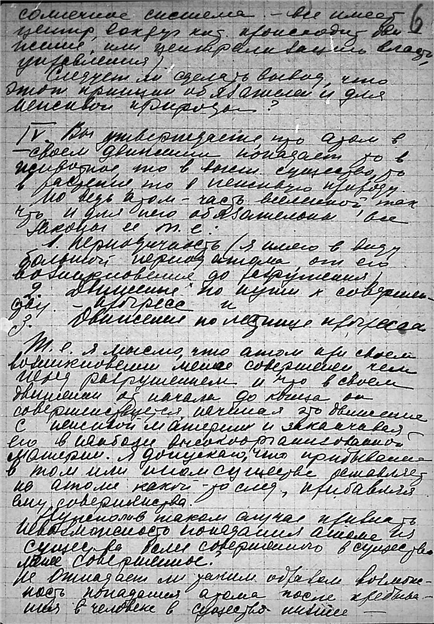 6
солнечное система. – все имеет
центр, вокруг кот. происходит дви
жение, или централизацию власть,
управления)
Следует ли сделать вывод, что
этот принцип обязателен и для
неживой природы?
IV Вы утверждаете, что атом в
своем движении попадает то в
животное, то в высш. существо, то
в растение, то в неживую природу.
Но ведь атом – часть вселенной, так
что и для него обязательны все
законы ее. Т.е.:
1. периодичность (я имею в виду
большой период атома от его
возникновения до разрушения)
2. Движение по пути к совершен-
ству – прогресс и
3. Движения по лестнице прогресса
Т.е. я мыслю, что атом при своем
возникновении менее совершенен чем
перед разрушением и что в своем
движении от начала до конца он
совершенствуется, начиная это движение
с неживой материи и заканчивая
его в наиболее высокоорганизованной
материи. Я допускаю, что пребывание
в том или ином существе оставляет
на атоме какой-то след, прибавляя
ему совершенства.
в таком случае признать
невозможность попадания атома из
существа более совершенного в существо
менее совершенное.
Не отпадает ли таким образом возмож-
ность попадания атома после пребыва-
ния в человеке в существа низшие –